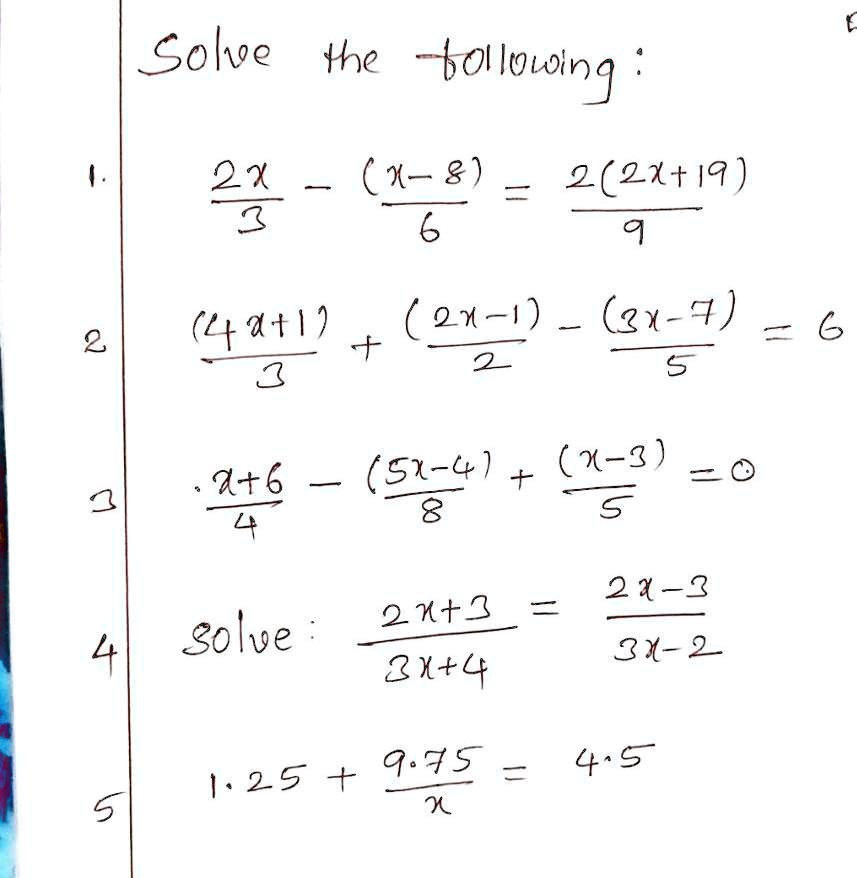 Solve the following:
1. 2x/3 - (x-8)/6 = 2(2x+19)/9
2 (4x+1)/3 + (2x-1)/2 - (3x-7)/5 = 6
3 .x+6/4 - (5x-4)/8 + (x-3)/5 = 0
4 Solve: 2x+3/3x+4 = 2x-3/3x-2
5 1.25 + 9.75/x = 4.5